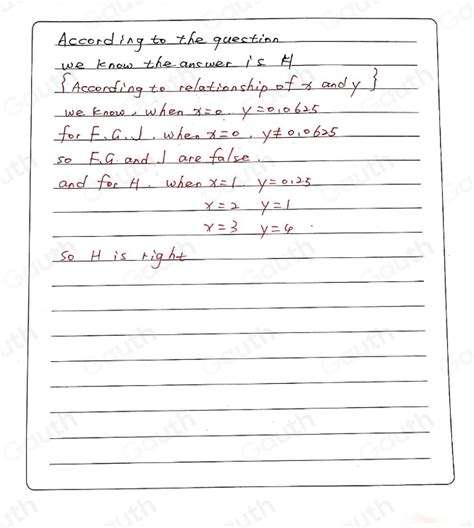 According to the question
we know the answer is H
{According to relationship of x and y}
we know, when x=0. y=0.0625
for F. G. J. when x=0, y≠0.0625
so F.G. and J are false.
and for H. when x=1. y=0.25
x=2 y=1
x=3 y=4.
So H is right